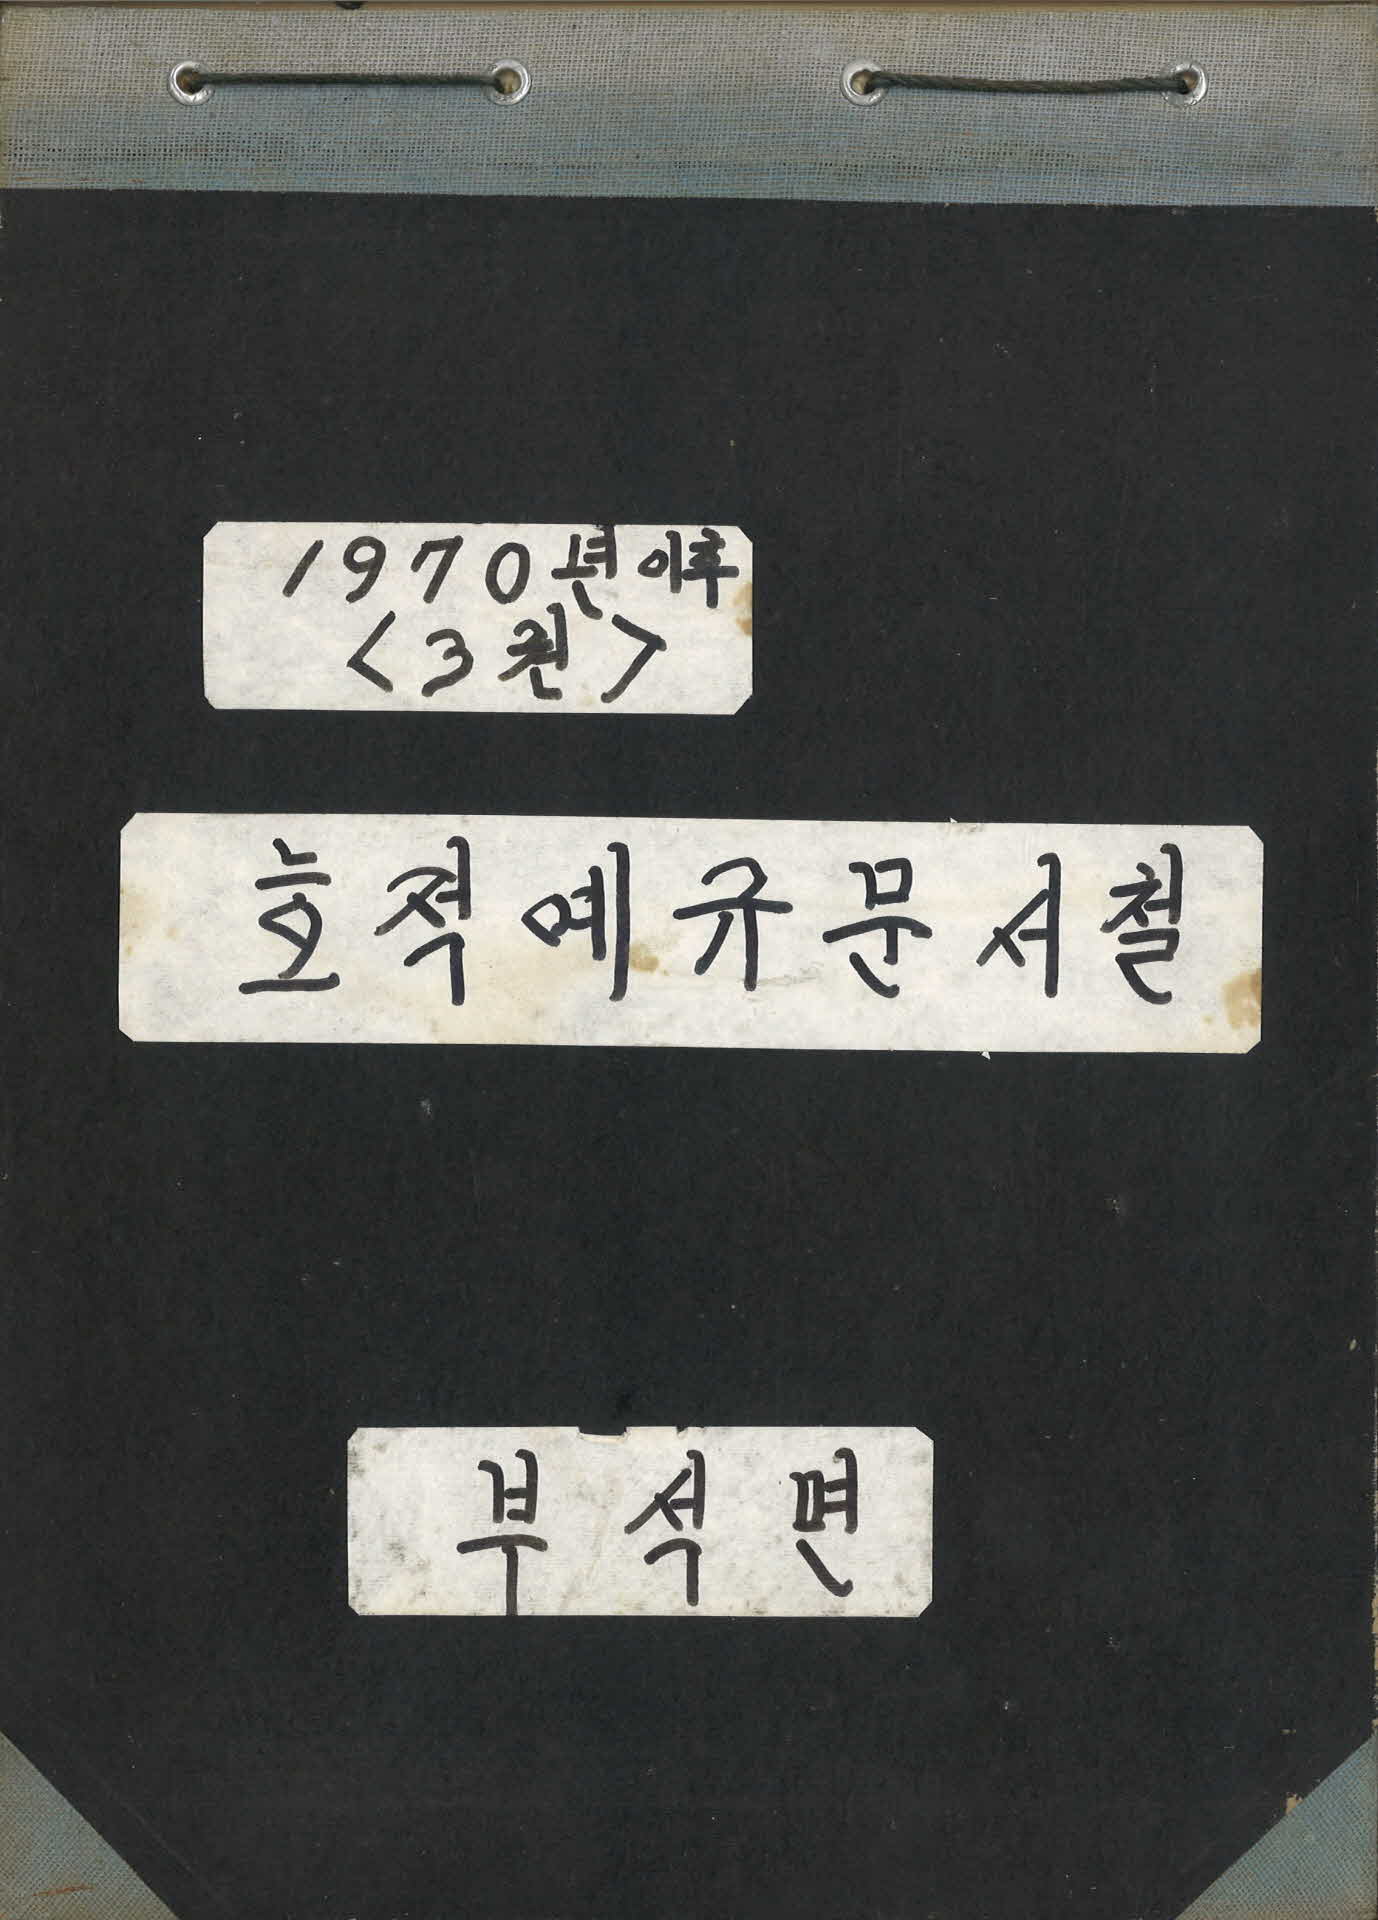 1970년 이후
<3권>
호적예규문서철
부석면